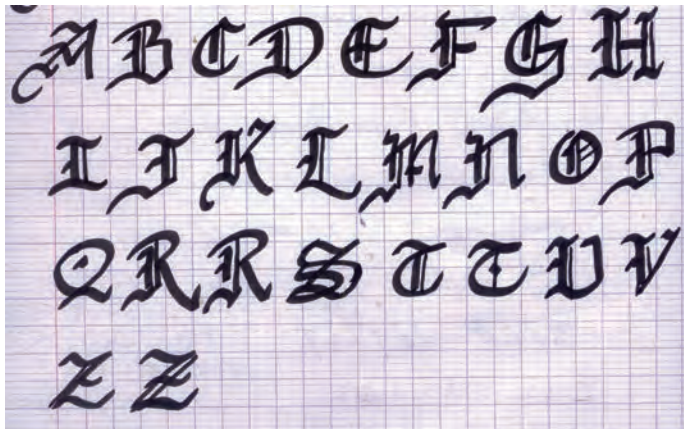 A B C D E F G H
I J K L M N O P
Q R R S T T U V
Z Z